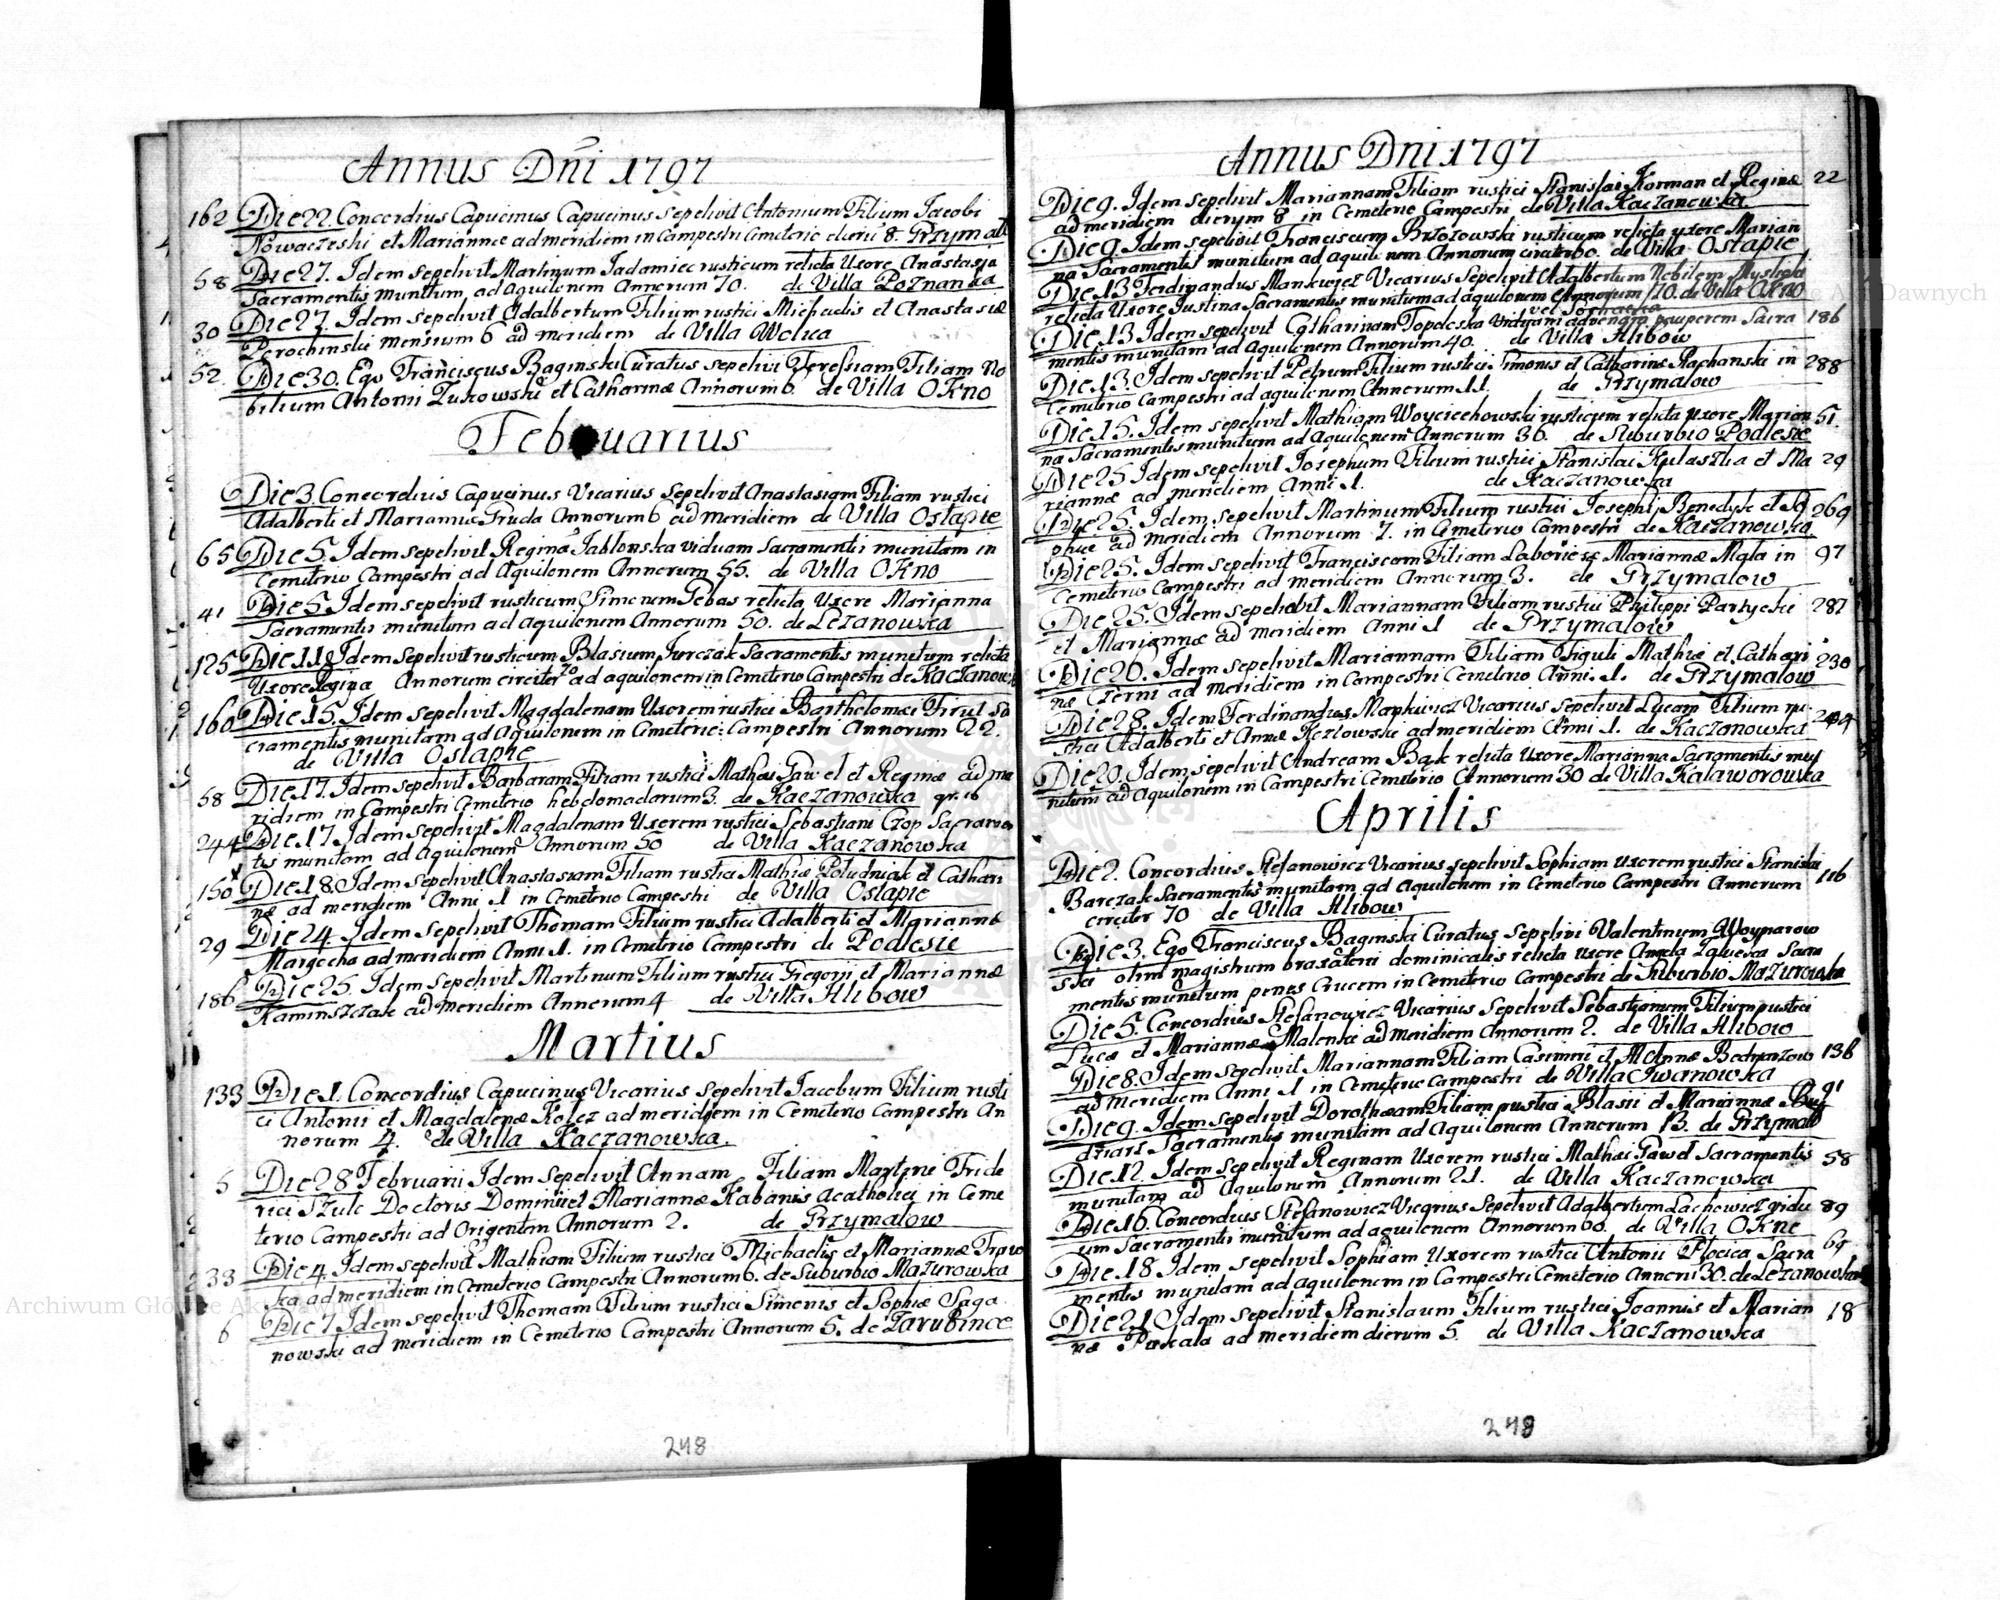 Annus Dñi 1797
162 Die 22. Concordius Capucinus Capucinus sepelivit Antonium Filium Jacobi
Nowaczeski et Mariannæ ad meridiem in Campestri Cimeterio dierū 8. Przymał
58 Die 27. Idem sepelivit Martinum Jadamiec rusticum relicta Uxore Anastasia
Sacramentis munitum ad Aquilonem Annorum 70. de Villa Poznanka
30 Die 27. Idem sepelivit Adalbertum Filium rustici Michaelis et Anastasiæ
Dorochinski mensium 6 ad meridiem de Villa Wolica
52. Die 30. Ego Franciscus Baginski Curatus sepelivi Teressiam Filiam No
bilium Antonii Zukowski et Catharinæ Annorum 6 de Villa Okno
Februarius
Die 3. Concordius Capucinus Vicarius Sepelivit Anastasiam Filiam rustici
Adalberti et Mariannæ Gruda Annorum 6 ad meridiem de Villa Ostapie
65 Die 5. Idem sepelivit Regina Jablonska viduam Sacramentis munitam in
Cemiterio Campestri ad Aquilonem Annorum 55. de Villa Okno
41 Die 5 Idem sepelivit rusticum Simonem Gebas relicta Uxore Marianna
Sacramentis munitum ad Aquilonem Annorum 50. de Lezanowka
125 Die 11 Idem Sepelivit rusticum Blasium Jurczak Sacramentis munitum relicta
Uxore Regina Annorum circiter 70 ad aquilonem in Cemiterio Campestri de Kaczanowk
160 Die 15. Idem sepelivit Magdalenam Uxorem rustici Bartholomæi Tirul Sa
cramentis munitam ad Aquilonem in Cimeterio Campestri Annorum 22.
de Villa Ostapie
58 Die 17. Idem sepelivit Barbaram Filiam rustici Mathei Pawel et Reginæ ad me
ridiem in Campestri Cemiterio hebdomadarum 3. de Kaczanowka
244 Die 17 Idem sepelivit Magdalenam Uxorem rustici Sebastiani Czop Sacramen
tis munitam ad Aquilonem Annorum 50 de Villa Kaczanowka
150 Die 18. Idem Sepelivit Anastasiam Filiam rustici Mathiæ Poludniak et Cathari
næ ad meridiem Anni 1 in Cemeterio Campestri de Villa Ostapie
29 Die 24 Idem sepelivit Thomam Filium rustici Adalberti et Mariannæ
Margocha ad meridiem Anni 1. in Cemiterio Campestri de Podlesie
186 Die 25. Idem Sepelivit Martinum Filium rustici Gregorij et Mariannæ
Kaminszczak ad meridiem Annorum 4 de Villa Hlibow
Martius
133 Die 1. Concordius Capucinus Vicarius Sepelivit Jacobum Filium rusti
ci Antonii et Magdalenæ Kolcz ad meridiem in Cemiterio Campestri An
norum 4. de Villa Kaczanowka
5 Die 28 Februarii Idem Sepelivit Annam Filiam Martini Fride
rici Szulc Doctoris Dominii et Mariannæ Kabanis acatholici in Ceme
terio Campestri ad Orientem Annorum 2. de Przymalow
33 Die 4. Idem sepelivit Mathiam Filium rustici Michaelis et Mariannæ Trawo
ka ad meridiem in Cemeterio Campestri Annorum 6. de Suburbio Mazurowka
6 Die 7 Idem sepelivit Thomam Filium rustici Simonis et Sophiæ Saga
nowski ad meridiem in Cemiterio Campestri Annorum 5. de Zarubince
248
Annus Dni 1797
Die 9. Idem sepelivit Mariannam Filiam rustici Stanislai Korman et Reginæ 22
ad meridiem dierum 8 in Cemeterio Campestri de Villa Kaczanowka
Die 9. Idem sepelivit Franciscum Brzozowski rusticum relicta uxore Marian
na Sacramentis munitum ad aquilonem Annorum circiter 60. de Villa Ostapie
Die 13 Ferdinandus Mankiewicz Vicarius Sepelivit Adalbertum Nobilem
relicta Uxore Justina Sacramentis munitum ad aquilonem Annorum 70. de Villa Okno
Die 13 Idem sepelivit Catharinam Topolska viduam pauperem Sacra 186
mentis munitam ad Aquilonem Annorum 40. de Villa Hlibow
Die 13. Idem sepelivit Petrum Filium rustici Simonis et Catharinæ Rachanski in 288
Cemiterio Campestri ad aquilonem Annorum 11. de Przymalow
Die 15. Idem sepelivit Mathiam Woyciechowski rusticum relicta uxore Marian 51.
na Sacramentis munitum ad Aquilonem Annorum 36. de Suburbio Podlesie
Die 25 Idem sepelivit Josephum Filium rustici Stanislai Kulaszka et Ma 29
riannæ ad meridiem Anni 1. de Kaczanowka
Die 25. Idem sepelivit Martinum Filium rustici Josephi Benedyk et So 269
phiæ ad meridiem Annorum 7. in Cemiterio Campestri de Kaczanowka
Die 25. Idem sepelivit Franciscam Filiam Laboriosæ Mariannæ Mała in 97
Cemiterio Campestri ad meridiem Annorum 3. de Przymalow
Die 25. Idem sepelivit Mariannam Filiam rustici Philippi Partycki 287
et Mariannæ ad meridiem Anni 1 de Przymalow
Die 20. Idem sepelivit Mariannam Filiam Figuli Mathiæ et Cathari 230
næ Czerni ad meridiem in Campestri Cemeterio Anni. 1. de Przymalow
Die 28. Idem Ferdinandus Mankiewicz Vicarius Sepelivit Lucam Filium ru
stici Adalberti et Annæ Kozlowski ad meridiem Anni 1. de Kaczanowka 244
Die 20. Idem sepelivit Andream Bąk relicta Uxore Marianna Sacramentis mu
nitum ad Aquilonem in Campestri Cemiterio Annorum 30 de Villa Kalaworowka
Aprilis
Die 2. Concordius Stefanowicz Vicarius sepelivit Sophiam uxorem rustici Stanislai
Barczak Sacramentis munitam ad Aquilonem in Cemeterio Campestri Annorum 116
circiter 70 de Villa Hlibow
Die 3. Ego Franciscus Baginski Curatus Sepelivi Valentinum Woynarow
ski olim magistrum braxatorii dominicalis relicta uxore Angela Sacra
mentis munitum penes Crucem in Cemeterio Campestri de Suburbio Mazurowka
Die 5. Concordius Stefanowicz Vicarius Sepelivit Sebastianum Filium rustici
Lucæ et Mariannæ Malenki ad meridiem Annorum 2. de Villa Hlibow
Die 8. Idem Sepelivit Mariannam Filiam Casimiri et M Annæ Bednarzow 136
ad meridiem Anni 1 in Cemeterio Campestri de Villa Iwanowka
Die 9. Idem sepelivit Dorotheam Filiam rustici Blasii et Mariannæ Buy 91
dziars Sacramentis munitam ad Aquilonem Annorum 13. de Przymalo
Die 12. Idem sepelivit Reginam Uxorem rustici Mathei Pawel Sacramentis 58
munitam ad Aquilonem Annorum 21. de Villa Kaczanowka
Die 16. Concordius Stefanowicz Vicarius Sepelivit Adalbertum Lachowicz vidu 89
um Sacramentis munitum ad aquilonem Annorum 60. de Villa Okno
Die 18 Idem sepelivit Sophiam Uxorem rustici Antonii Plocica Sacra 69
mentis munitam ad Aquilonem in Campestri Cemiterio Annorū 30. de Lezanowka
Die 21 Idem sepelivit Stanislaum Filium rustici Joannis et Marian 18
næ Puskala ad meridiem dierum 5 de Villa Kaczanowka
248
Archiwum Główne Akt Dawnych